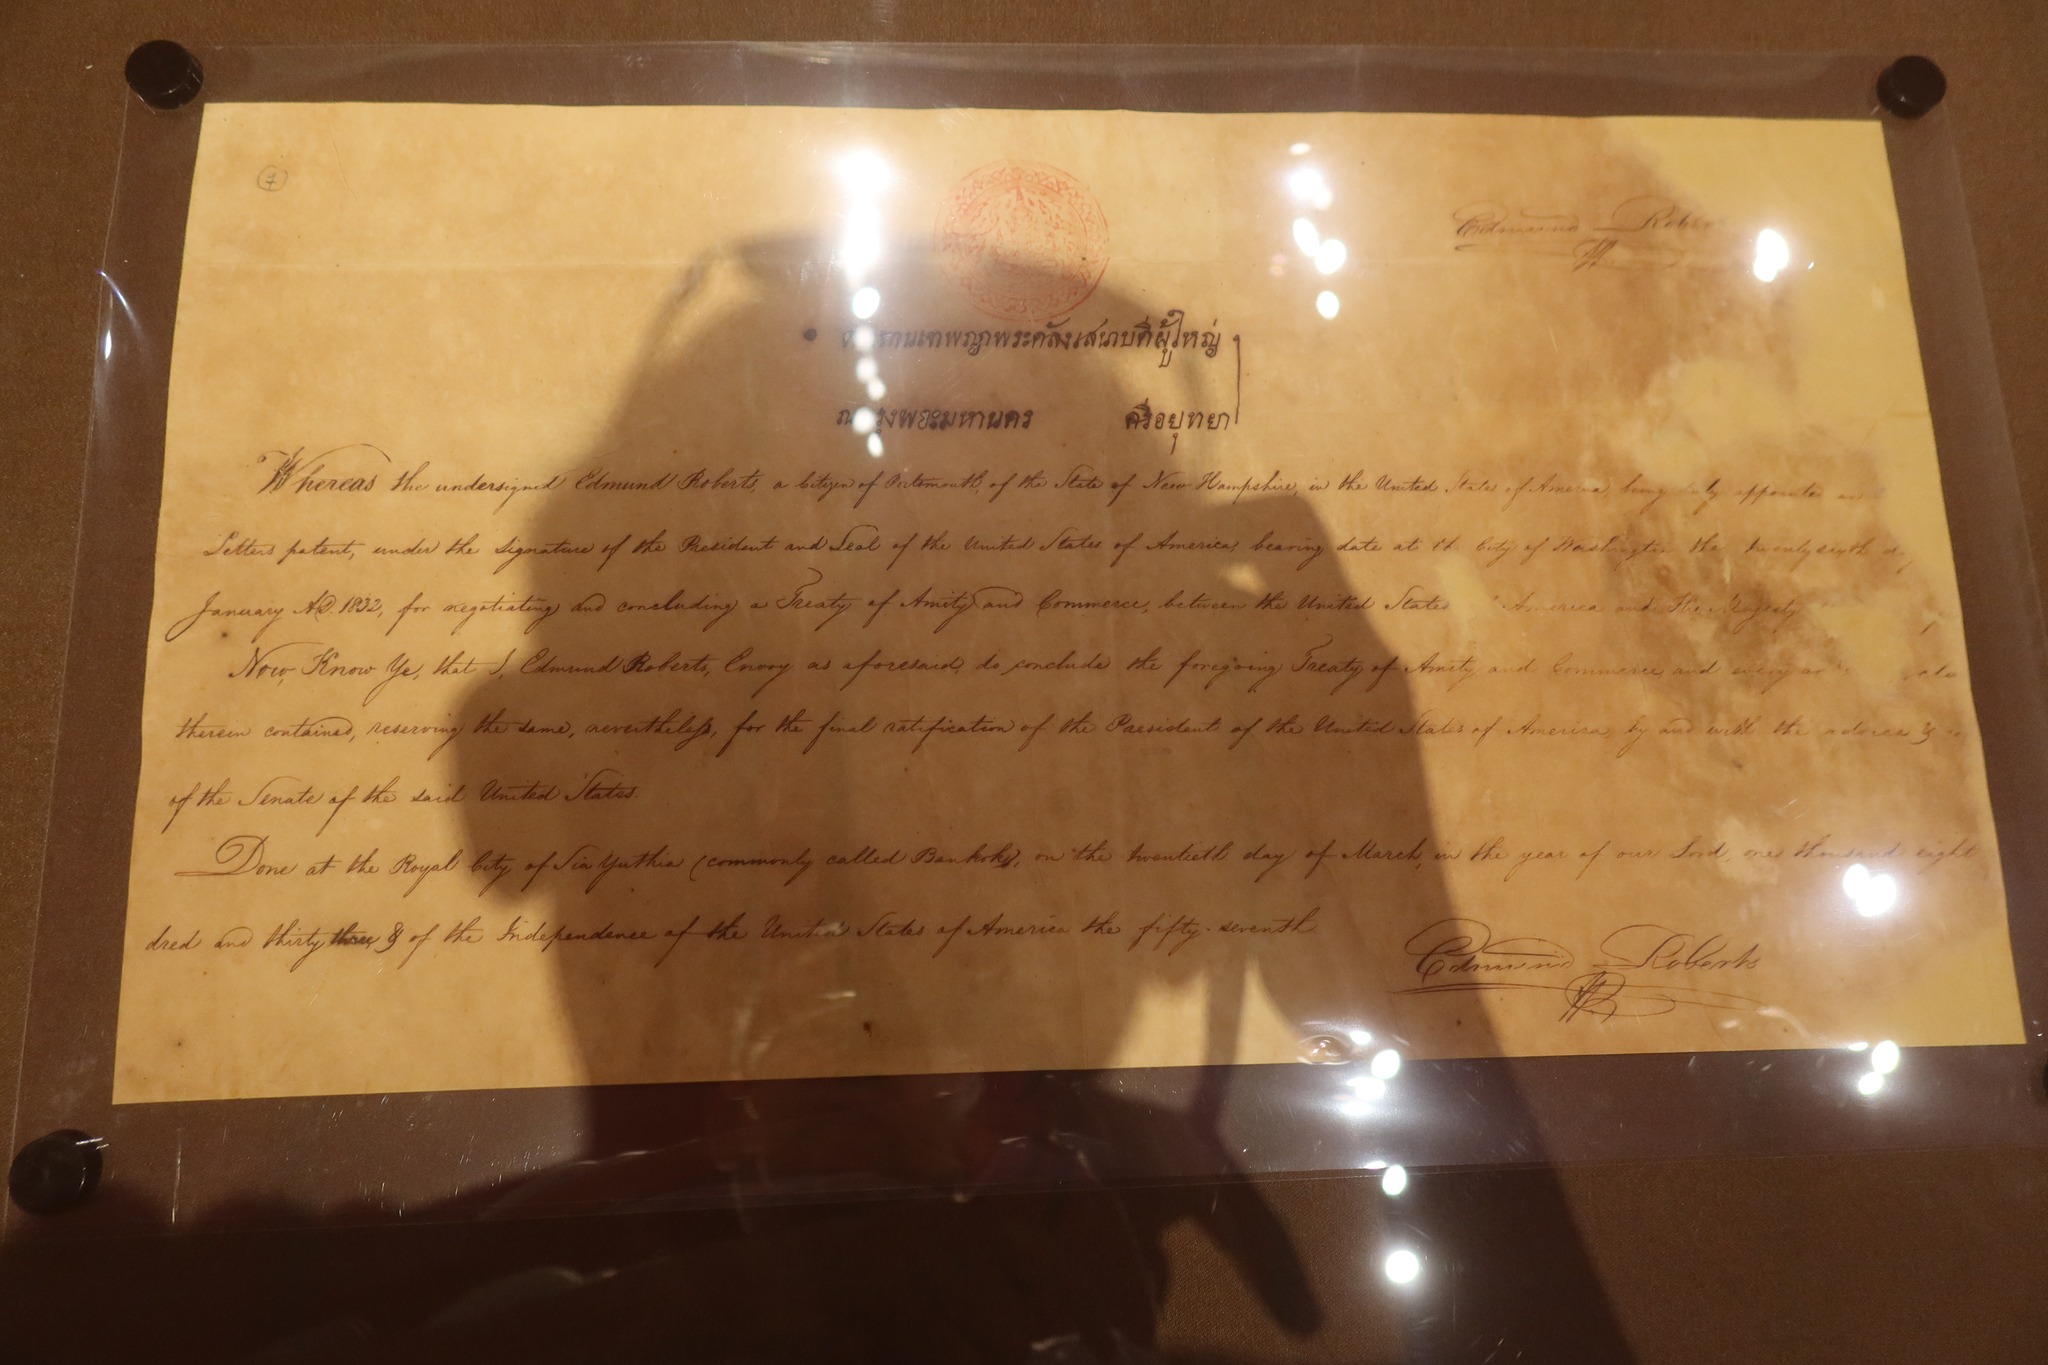 7
Edmund Roberts
พระคลังเสนาบดีผู้ใหญ่
มหานคร ศรีอยุทยา
Whereas the undersigned Edmund Roberts, a Citizen of Portsmouth, of the State of New Hampshire, in the United States of America, being duly appointed
Letters patent, under the Signature of the President and Seal of the United States of America, bearing date at the City of Washington the twenty sixth
January A.D. 1832, for negotiating and concluding a Treaty of Amity and Commerce, between the United States America and His Majesty
Now, Know Ye, that I, Edmund Roberts, Envoy as aforesaid, do conclude the foregoing Treaty of Amity and Commerce, and every
therein contained, reserving the same, nevertheless, for the final ratification of the President of the United States of America, by and with the advice &
of the Senate of the said United States.
Done at the Royal City of Sia Yuthia (commonly called Bankok), on the twentieth day of March, in the year of our Lord, one thousand eight
dred and thirty three, & of the Independence of the United States of America the fifty-seventh
Edmund Roberts